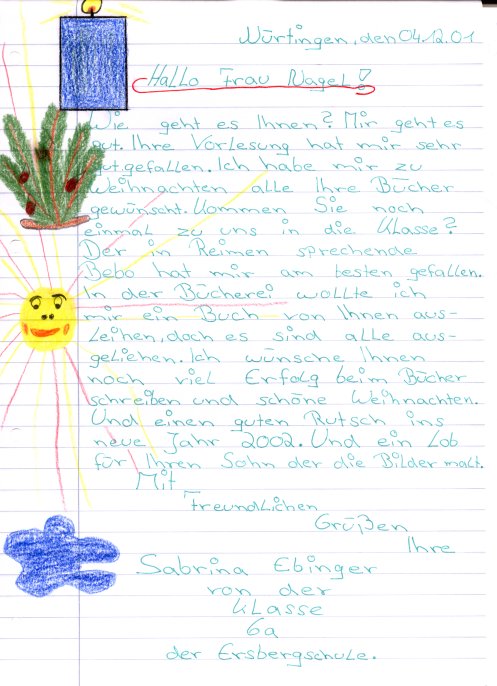 Nürtingen, den 04.12.01
Hallo Frau Nagel!
Wie geht es Ihnen? Mir geht es
gut. Ihre Vorlesung hat mir sehr
gut gefallen. Ich habe mir zu
Weihnachten alle Ihre Bücher
gewünscht. Kommen Sie noch
einmal zu uns in die Klasse?
Der in Reimen sprechende
Bebo hat mir am besten gefallen.
In der Bücherei wollte ich
mir ein Buch von Ihnen aus-
leihen, doch es sind alle aus-
geliehen. Ich wünsche Ihnen
noch viel Erfolg beim Bücher
schreiben und schöne Weihnachten.
Und einen guten Rutsch ins
neue Jahr 2002. Und ein Lob
für Ihren Sohn der die Bilder malt.
Mit
Freundlichen
Grüßen
Ihre
Sabrina Ebinger
von der
Klasse
6a
der Ersbergschule.